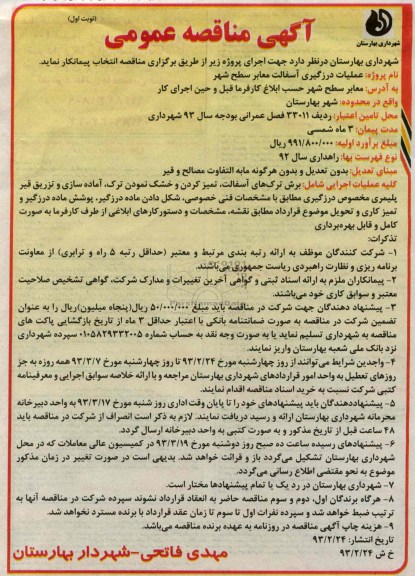 (نوبت اول)
آگهی مناقصه عمومی
شهرداری بهارستان
شهرداری بهارستان درنظر دارد جهت اجرای پروژه زیر از طریق برگزاری مناقصه انتخاب پیمانکار نماید.
نام پروژه: عملیات درزگیری آسفالت معابر سطح شهر
به آدرس: معابر سطح شهر حسب ابلاغ کارفرما قبل و حین اجرای کار
واقع در محدوده: شهر بهارستان
محل تامین اعتبار: ردیف ۳۳۰۱۱ فصل عمرانی بودجه سال ۹۳ شهرداری
مدت پیمان: ۳ ماه شمسی
مبلغ برآورد اولیه: ۹۹۱/۸۰۰/۰۰۰ ریال
نوع فهرست بها: راهداری سال ۹۲
مبنای تعدیل: بدون تعدیل و بدون هرگونه مابه التفاوت مصالح و قیر
کلیه عملیات اجرایی شامل: برش ترک‌های آسفالت، تمیز کردن و خشک نمودن ترک، آماده سازی و تزریق قیر
پلیمری مخصوص درزگیری مطابق با مشخصات فنی خصوصی، شکل دادن ماده درزگیر، پوشش ماده درزگیر و
تمیز کاری و تحویل موضوع قرارداد مطابق نقشه، مشخصات و دستورکارهای ابلاغی از طرف کارفرما به صورت
کامل و قابل بهره‌برداری
تذکرات:
۱- شرکت کنندگان موظف به ارائه رتبه بندی مرتبط و معتبر (حداقل رتبه ۵ راه و ترابری) از معاونت
برنامه ریزی و نظارت راهبردی ریاست جمهوری می‌باشند.
۲- پیمانکاران ملزم به ارائه اسناد ثبتی و گواهی آخرین تغییرات و مدارک شرکت، گواهی تشخیص صلاحیت
معتبر و سوابق کاری خود می‌باشند.
۳- پیشنهاد دهندگان جهت شرکت در مناقصه باید مبلغ ۵۰/۰۰۰/۰۰۰ ریال(پنجاه میلیون)ریال را به عنوان
تضمین شرکت در مناقصه به صورت ضمانتنامه بانکی با اعتبار حداقل ۳ ماه از تاریخ بازگشایی پاکت های
مناقصه به شهرداری تسلیم نماید یا به صورت وجه نقد به حساب شماره ۰۱۰۵۸۲۹۳۳۲۰۰۵ سپرده شهرداری
نزد بانک ملی شعبه بهارستان واریز نمایند.
۴- واجدین شرایط می‌توانند از روز چهارشنبه مورخ ۹۳/۲/۲۴ تا روز چهارشنبه مورخ ۹۳/۳/۷ همه روزه به جز
روزهای تعطیل به واحد امور قراردادهای شهرداری بهارستان مراجعه و با ارائه خلاصه سوابق اجرایی و معرفینامه
کتبی شرکت نسبت به خرید اسناد مناقصه اقدام نمایند.
۵- پیشنهاددهندگان باید پیشنهادهای خود را تا پایان وقت اداری روز شنبه مورخ ۹۳/۳/۱۷ به واحد دبیرخانه
محرمانه شهرداری بهارستان ارائه و رسید دریافت نمایند. لازم به ذکر است انصراف از شرکت در مناقصه باید
۴۸ ساعت قبل از تاریخ مذکور و به صورت کتبی به واحد دبیرخانه ارسال گردد.
۶- پیشنهادهای رسیده ساعت ده صبح روز دوشنبه مورخ ۹۳/۳/۱۹ در کمیسیون عالی معاملات که در محل
شهرداری بهارستان تشکیل می‌گردد باز و قرائت خواهد شد. بدیهی است در صورت تغییر در زمان مذکور
موضوع به نحو مقتضی اطلاع رسانی می‌گردد.
۷- شهرداری بهارستان در رد یک یا تمام پیشنهادها مختار است.
۸- هرگاه برندگان اول، دوم و سوم مناقصه حاضر به انعقاد قرارداد نشوند سپرده شرکت در مناقصه آنها به
ترتیب ضبط خواهد شد و سپرده نفرات اول تا سوم تا زمان عقد قرارداد با برنده مسترد نخواهد شد.
۹- هزینه چاپ آگهی مناقصه در روزنامه به عهده برنده مناقصه می‌باشد.
تاریخ انتشار: ۹۳/۲/۲۴
خ ش ۹۳/۲/۲۴
مهدی فاتحی-شهردار بهارستان